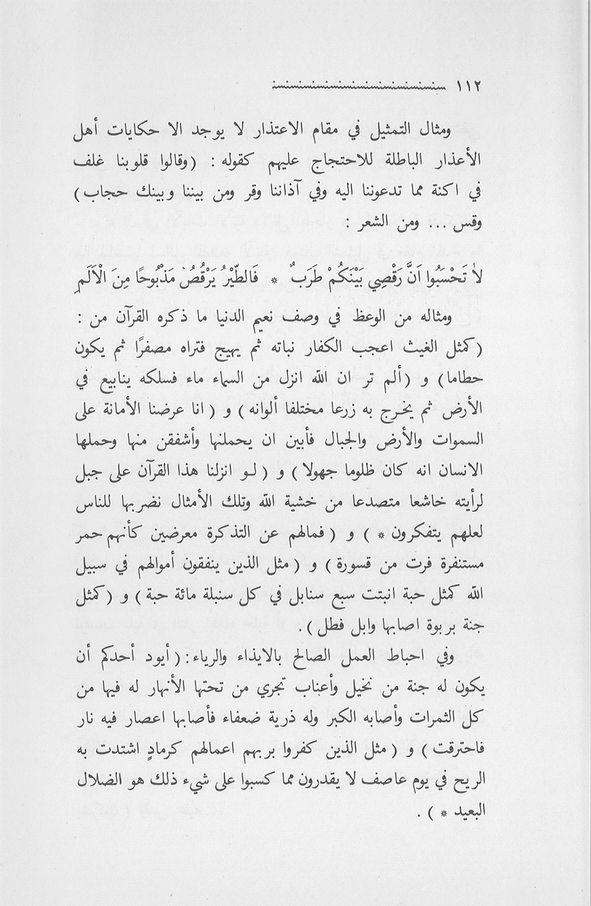 ١١٢
ومثال التمثيل في مقام الاعتذار لا يوجد الا حكايات أهل
الأعذار الباطلة للاحتجاج عليهم كقوله : (وقالوا قلوبنا غلف
في اكنة مما تدعوننا اليه وفي آذاننا وقر ومن بيننا وبينك حجاب)
وقس ... ومن الشعر :
لاٰ تَحْسَبُوا اَنَّ رَقْصِي بَيْنَكُمْ طَرَبٌ * فَالطَّيْرُ يَرْقُصُ مَذْبُوحًا مِنَ الْاَلَمِ
ومثاله من الوعظ في وصف نعيم الدنيا ما ذكره القرآن من :
(كمثل الغيث اعجب الكفار نباته ثم يهيج فتراه مصفرًا ثم يكون
حطاما) و (ألم تر ان الله انزل من السماء ماء فسلكه ينابيع في
الأرض ثم يخرج به زرعا مختلفا ألوانه) و (انا عرضنا الأمانة على
السموات والأرض والجبال فأبين ان يحملنها وأشفقن منها وحملها
الانسان انه كان ظلوما جهولا) و (لو انزلنا هذا القرآن على جبل
لرأيته خاشعا متصدعا من خشية الله وتلك الأمثال نضربها للناس
لعلهم يتفكرون *) و (فمالهم عن التذكرة معرضين كأنهم حمر
مستنفرة فرت من قسورة) و (مثل الذين ينفقون أموالهم في سبيل
الله كمثل حبة انبتت سبع سنابل في كل سنبلة مائة حبة) و (كمثل
جنة بربوة اصابها وابل فطل).
وفي احباط العمل الصالح بالايذاء والرياء: (أيود أحدكم أن
يكون له جنة من نخيل وأعناب تجري من تحتها الأنهار له فيها من
كل الثمرات وأصابه الكبر وله ذرية ضعفاء فأصابها اعصار فيه نار
فاحترقت) و (مثل الذين كفروا بربهم اعمالهم كرمادٍ اشتدت به
الريح في يوم عاصف لا يقدرون مما كسبوا على شيء ذلك هو الضلال
البعيد *).